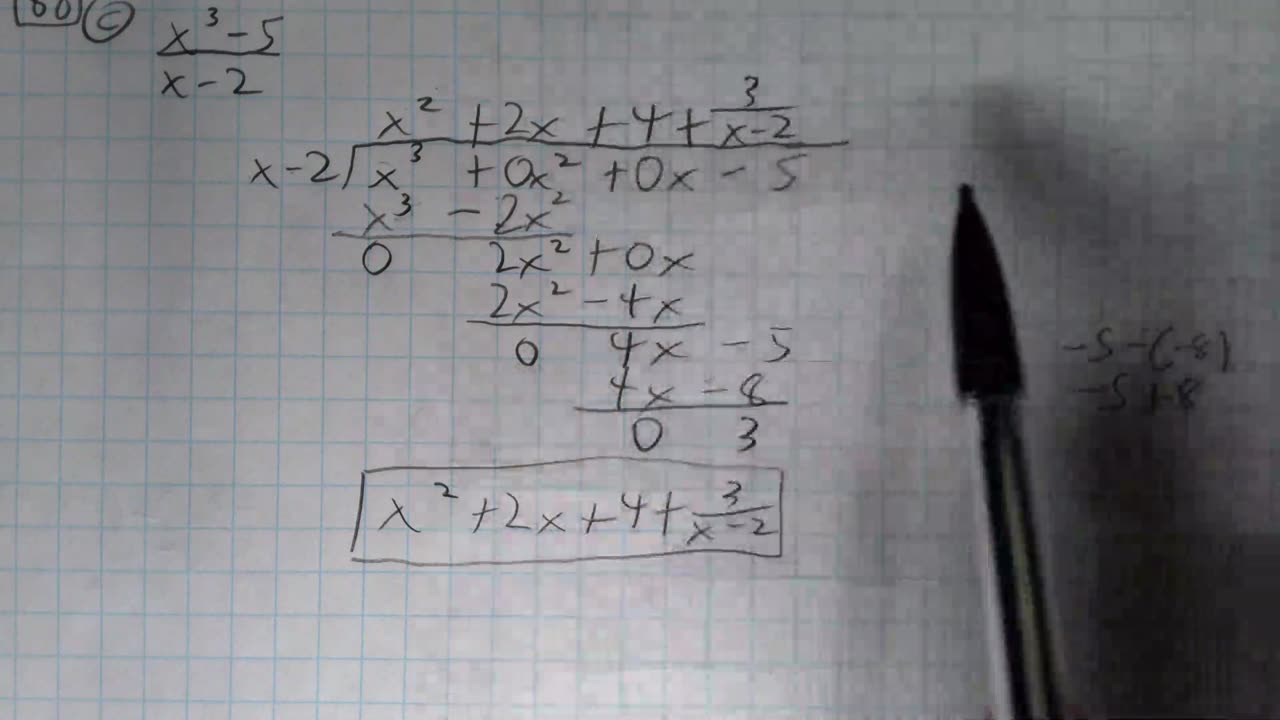 80 c
x³-5
x-2
x² +2x +4+ 3
x-2
x-2 x³ +0x² +0x -5
x³ -2x²
0 2x² +0x
2x² -4x
0 4x -5
4x -8
0 3
-5-(-8)
-5+8
x² +2x+4+ 3
x-2